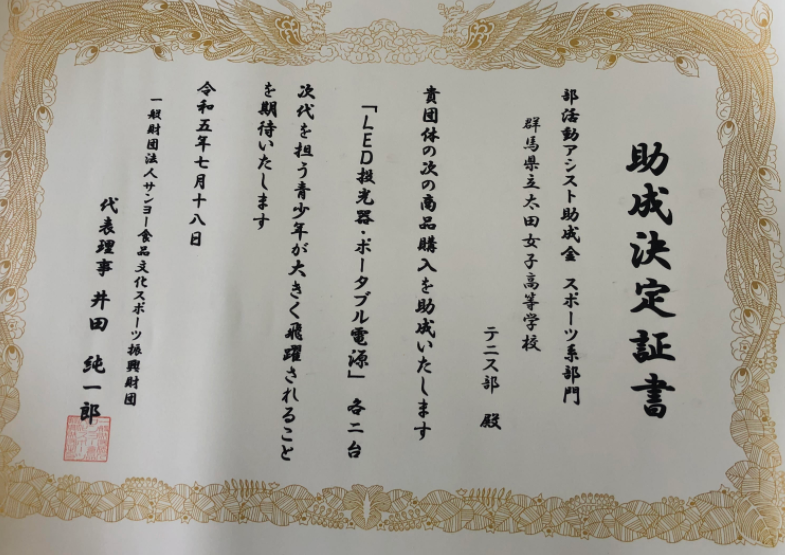 助成決定証書
部活動アシスト助成金 スポーツ系部門
群馬県立太田女子高等学校
テニス部 殿
貴団体の次の商品購入を助成いたします
「LED投光器・ポータブル電源」各二台
次代を担う青少年が大きく飛躍されること
を期待いたします
令和五年七月十八日
一般財団法人サンヨー食品文化スポーツ振興財団
代表理事 井田 純一郎